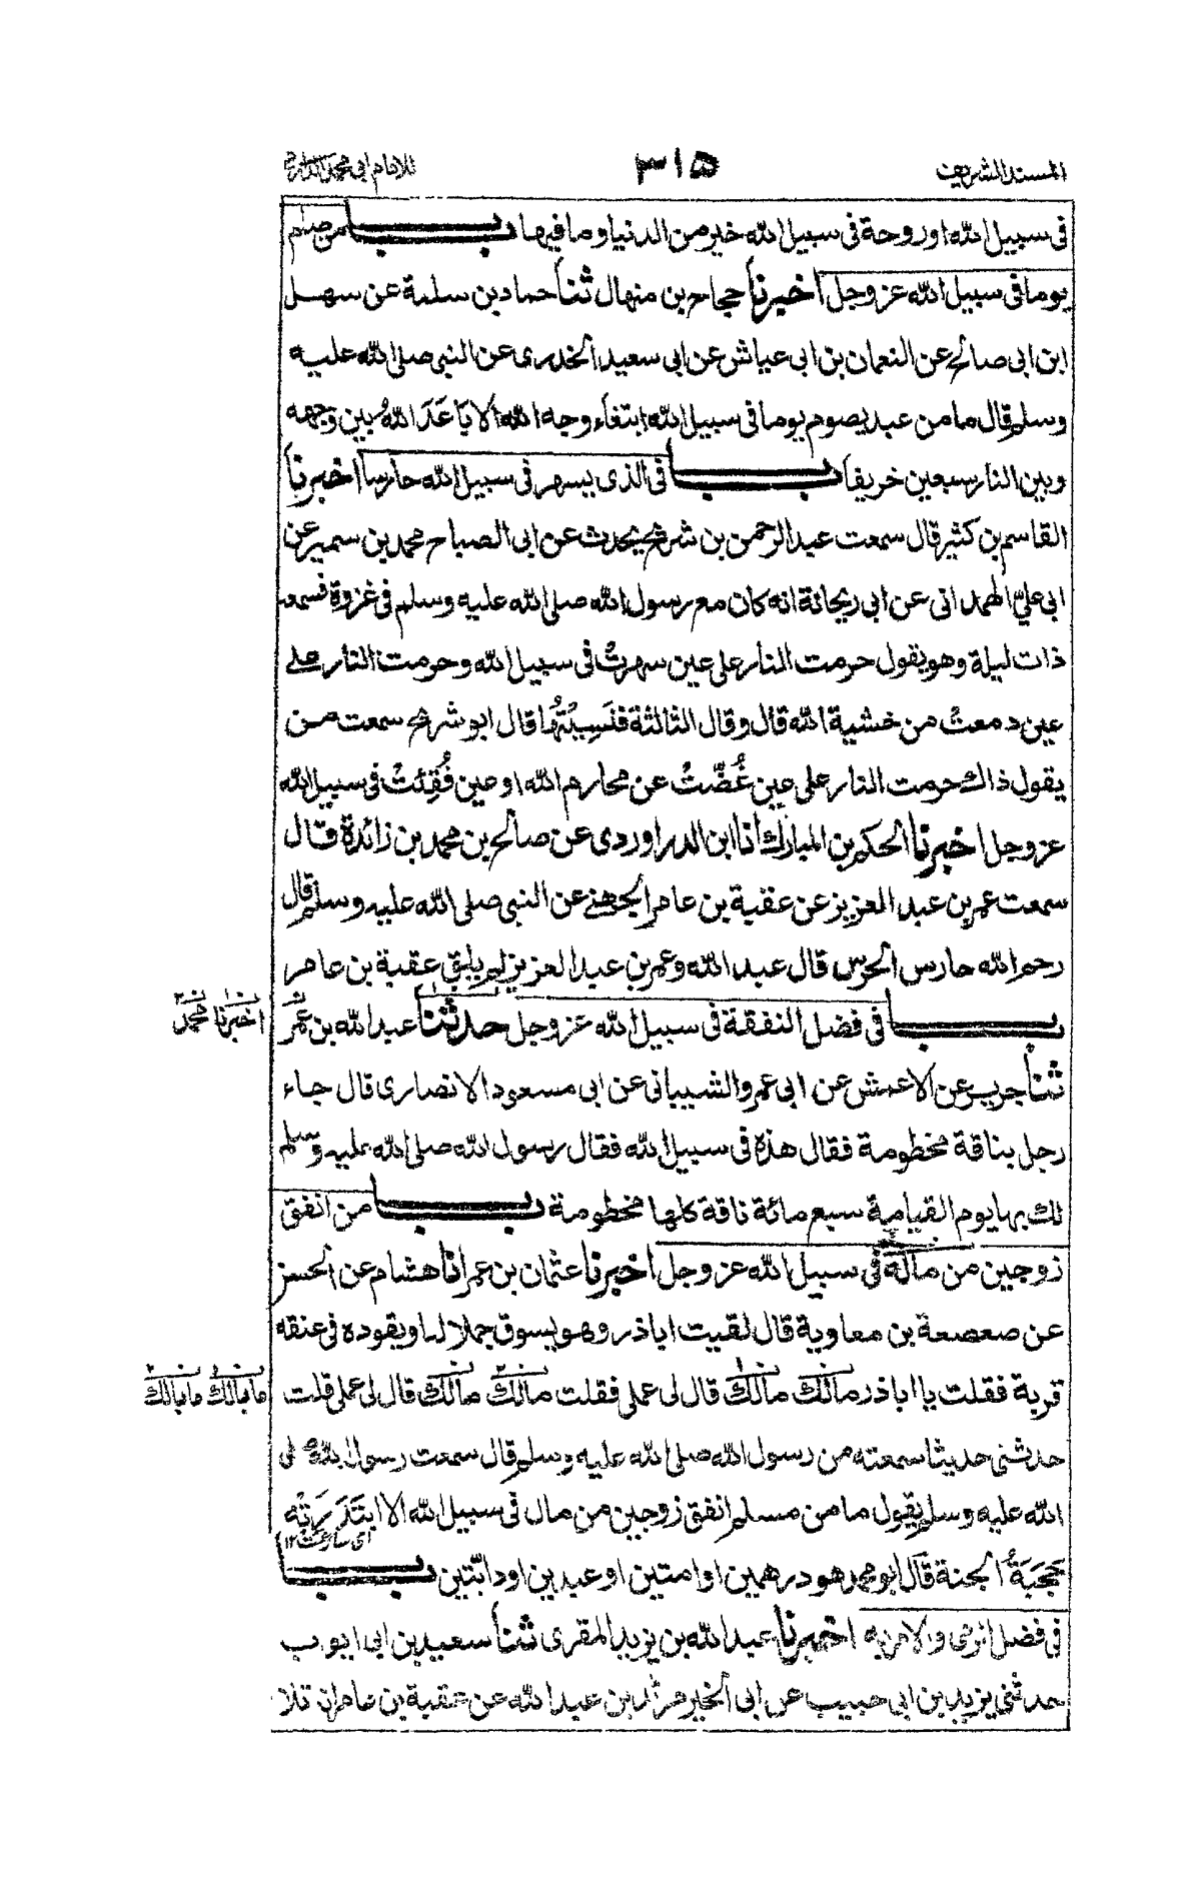 المسند الشريف
٣١٥
للامام ابی محمد الدارمی
فی سبیل الله اوروحة فی سبیل الله خیر من الدنیا وما فیها باب من صام
یوما فی سبیل الله عزوجل اخبرنا حجاج بن منهال ثنا حماد بن سلمة عن سهیل
ابن ابی صالح عن النعمان بن ابی عیاش عن ابی سعید الخدری عن النبی صلی الله علیه
وسلم قال ما من عبد یصوم یوما فی سبیل الله ابتغاء وجه الله الا بَاعَدَ اللهُ بین وجهه
وبین النار سبعین خریفا باب فی الذی یسهر فی سبیل الله حارسا اخبرنا
القاسم بن کثیر قال سمعت عبد الرحمن بن شریح یحدث عن ابی الصباح محمد بن سمیر عن
ابی علیّ الهمدانی عن ابی ریحانة انه کان مع رسول الله صلی الله علیه وسلم فی غزوة فسمعه
ذات لیلة وهو یقول حرمت النار علی عین سهرتْ فی سبیل الله وحرمت النار علے
عین دمعتْ من خشیة الله قال وقال الثالثة فنَسِیْتُهَا قال ابو شریح سمعت من
یقول ذاك حرمت النار علی عین غُضَّتْ عن محارم الله او عین فُقِئتْ فی سبیل الله
عزوجل اخبرنا الحکم بن المبارك انا ابن الدراوردی عن صالح بن محمد بن زائدة قال
سمعت عمر بن عبد العزیز عن عقبة بن عامر الجهنے عن النبی صلی الله علیه وسلم قال
رحم الله حارس الحرس قال عبد الله وعمر بن عبد العزیز لم یلق عقبة بن عامر
باب فی فضل النفقة فی سبیل الله عزوجل حدثنا عبد الله بن عُمَر
اخبرنا محمد
ثنا جریر عن الاعمش عن ابی عمرو الشیبانی عن ابی مسعود الانصاری قال جاء
رجل بناقة مخطومة فقال هذه فی سبیل الله فقال رسول الله صلی الله علیه وسلم
لك بها یوم القیامة سبع مائة ناقة کلها مخطومة باب من انفق
زوجین من ماله فی سبیل الله عزوجل اخبرنا عثمان بن عمر انا هشام عن الحسن
عن صعصعة بن معاویة قال لقیت اباذر وهو یسوق جملا له او یقوده فی عنقه
قربة فقلت یا اباذر مالك مالك قال لی عملی فقلت مالك مالك قال لی عملی قلت
مابالك مابالك
حدثنی حدیثا سمعته من رسول الله صلی الله علیه وسلم قال سمعت رسول الله صلی
الله علیه وسلم یقول ما من مسلم انفق زوجین من مال فی سبیل الله الا ابتَدَرَتْه
ای سارعت ١٢
حَجَبَةُ الجنة قال ابو محمد هو درهمین او امتین او عبدین او دابّتین باب
فی فضل الرمی والامر به اخبرنا عبد الله بن یزید المقری ثنا سعید بن ابی ایوب
حدثنی یزید بن ابی حبیب عن ابی الخیر مرثد بن عبد الله عن عقبة بن عامر انه تلا